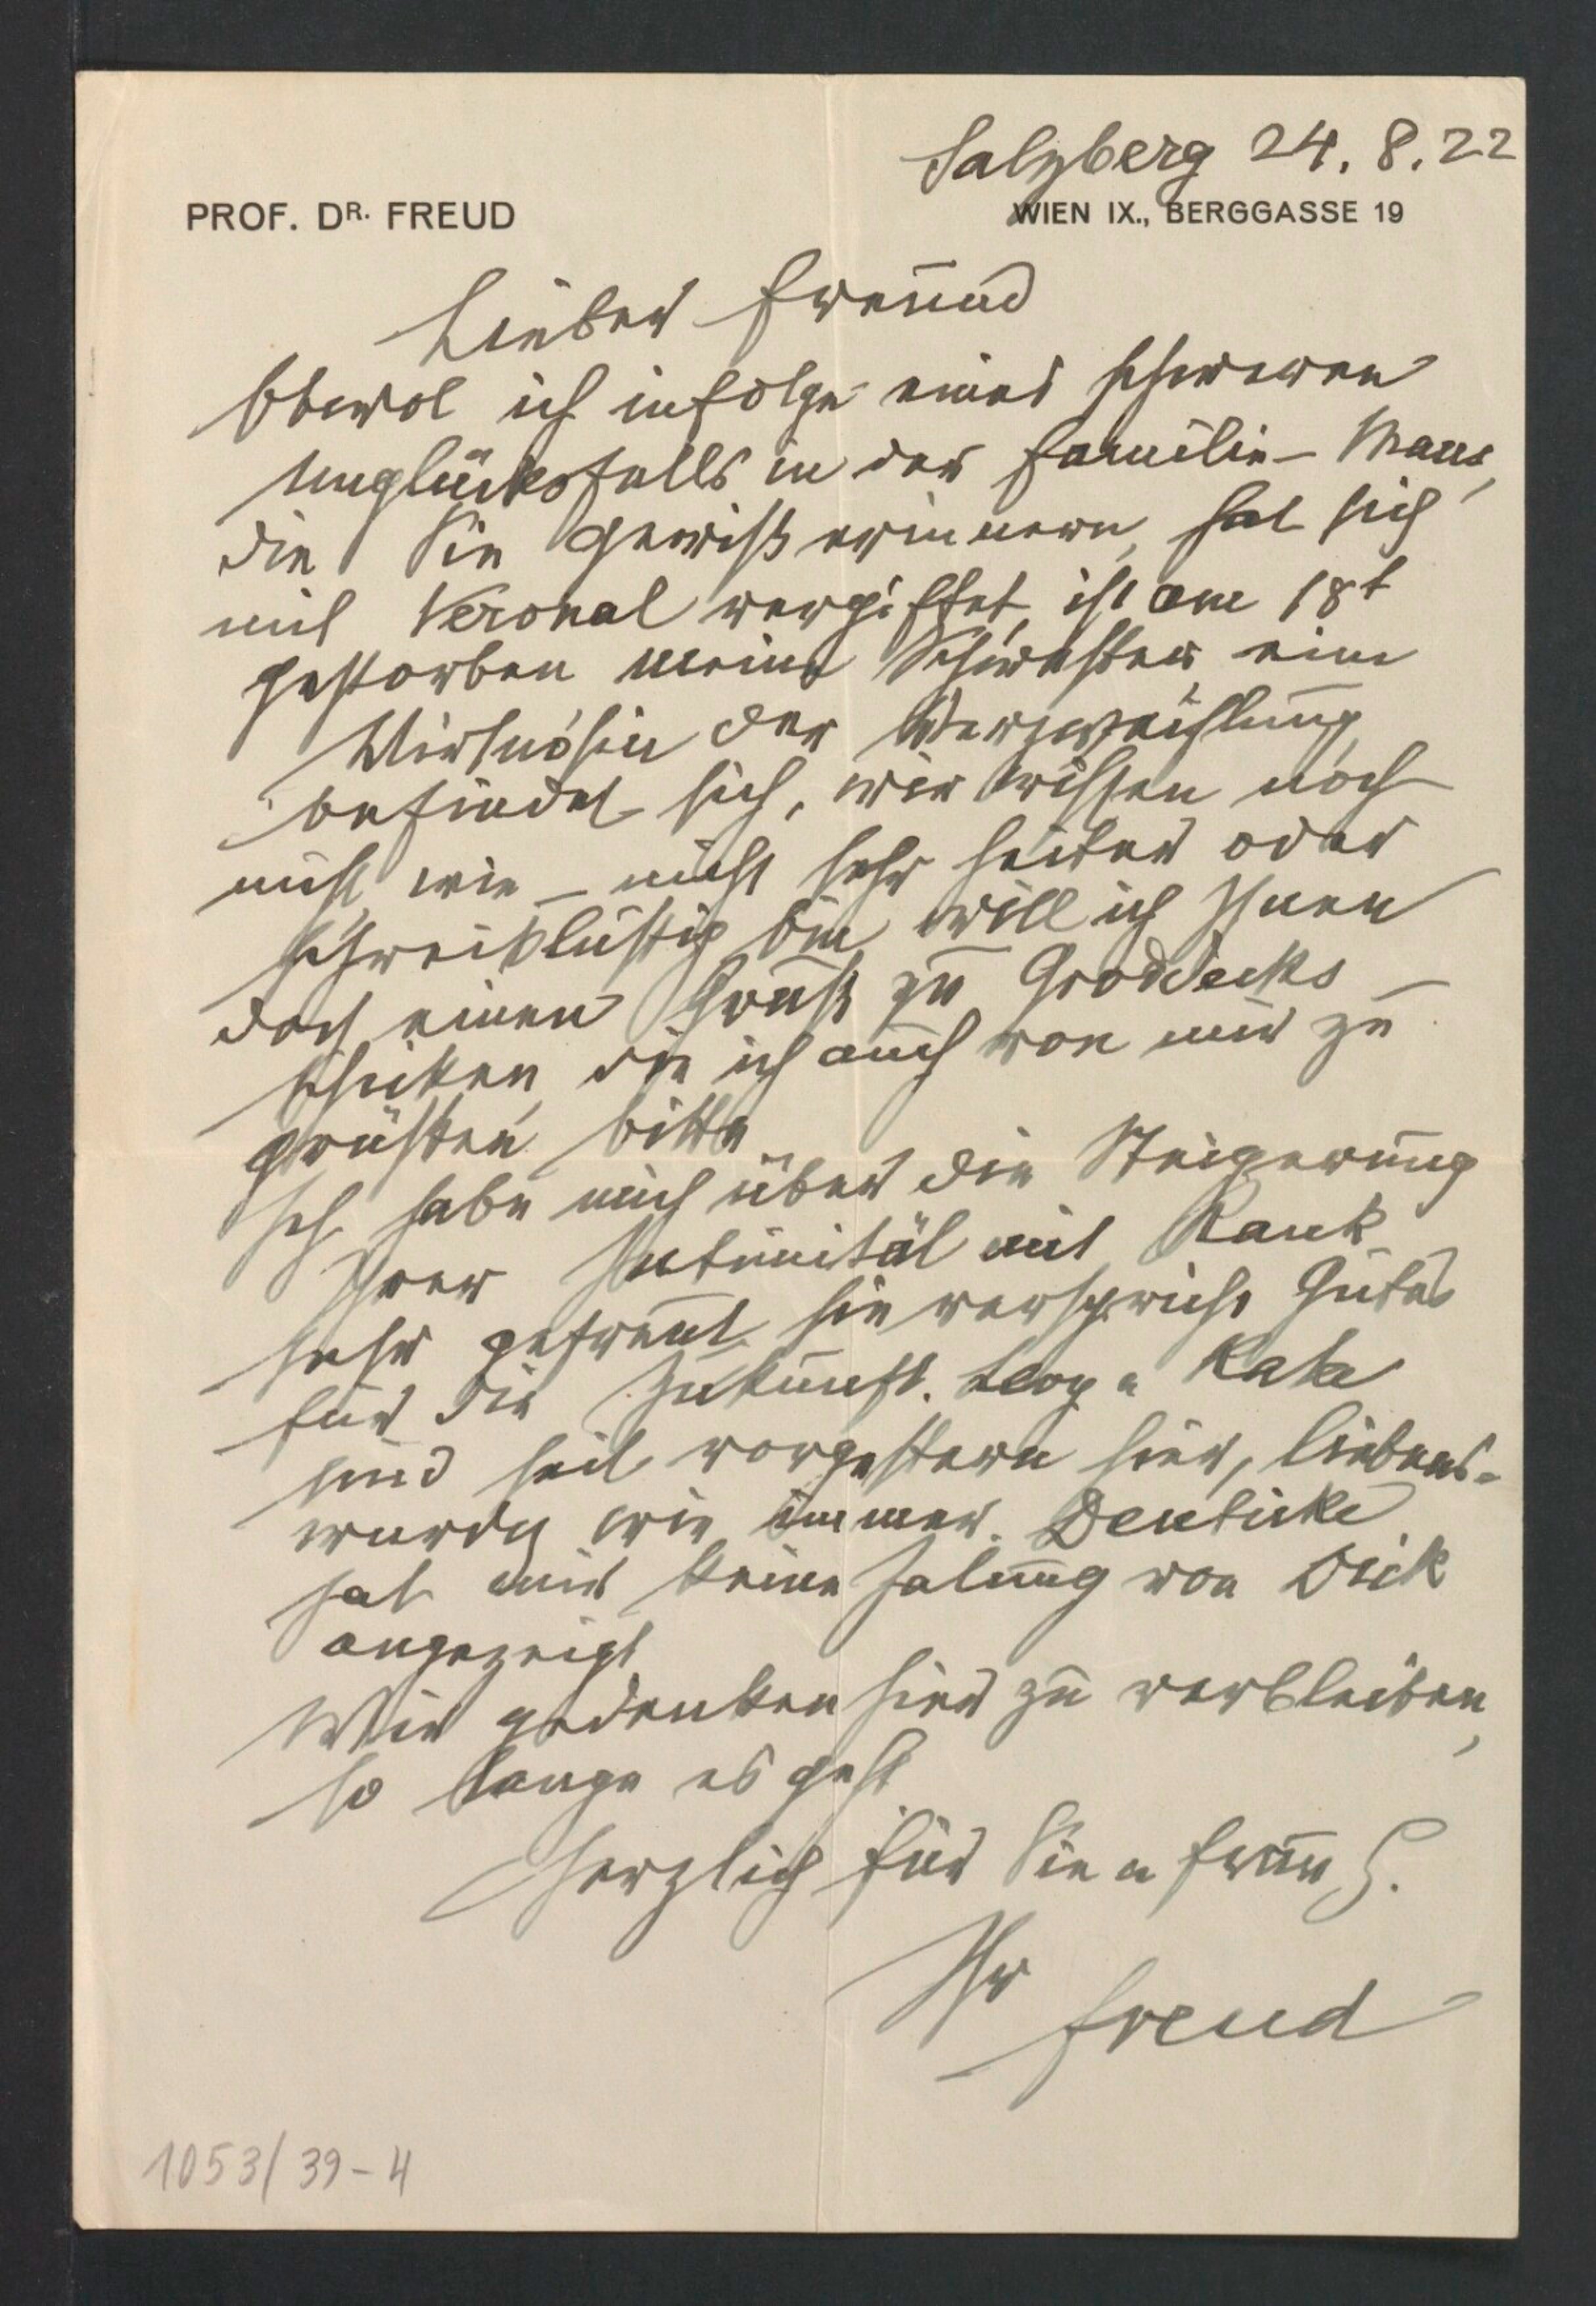 Salzberg 24. 8. 22
PROF. DR. FREUD
WIEN IX., BERGGASSE 19
Lieber Freund
Obwol ich infolge eines schweren
Unglücksfalls in der Familie – Maus,
die Sie gewiß erinnern, hat sich
mit Veronal vergiftet, ist am 18t
gestorben meine Schwester, eine
Virtuosin der Verzweiflung,
befindet sich, wir wissen noch
nicht wie – nicht sehr heiter oder
schreiblustig bin, will ich Ihnen
doch einen Gruß zu Groddecks –
schicken, die ich auch von mir zu
grüßen bitte.
Ich habe mich über die Steigerung
Ihrer Intimität mit Rank
sehr gefreut, sie verspricht Gutes
für die Zukunft. Levy u Kata
sind seit vorgestern hier, liebens-
würdig wie immer. Deuticke
hat mir keine Zalung von Dick
angezeigt
Wir gedenken hier zu verbleiben,
so lange es geht
Herzlich für Sie u Frau G.
Ihr
Freud
1053/39-4